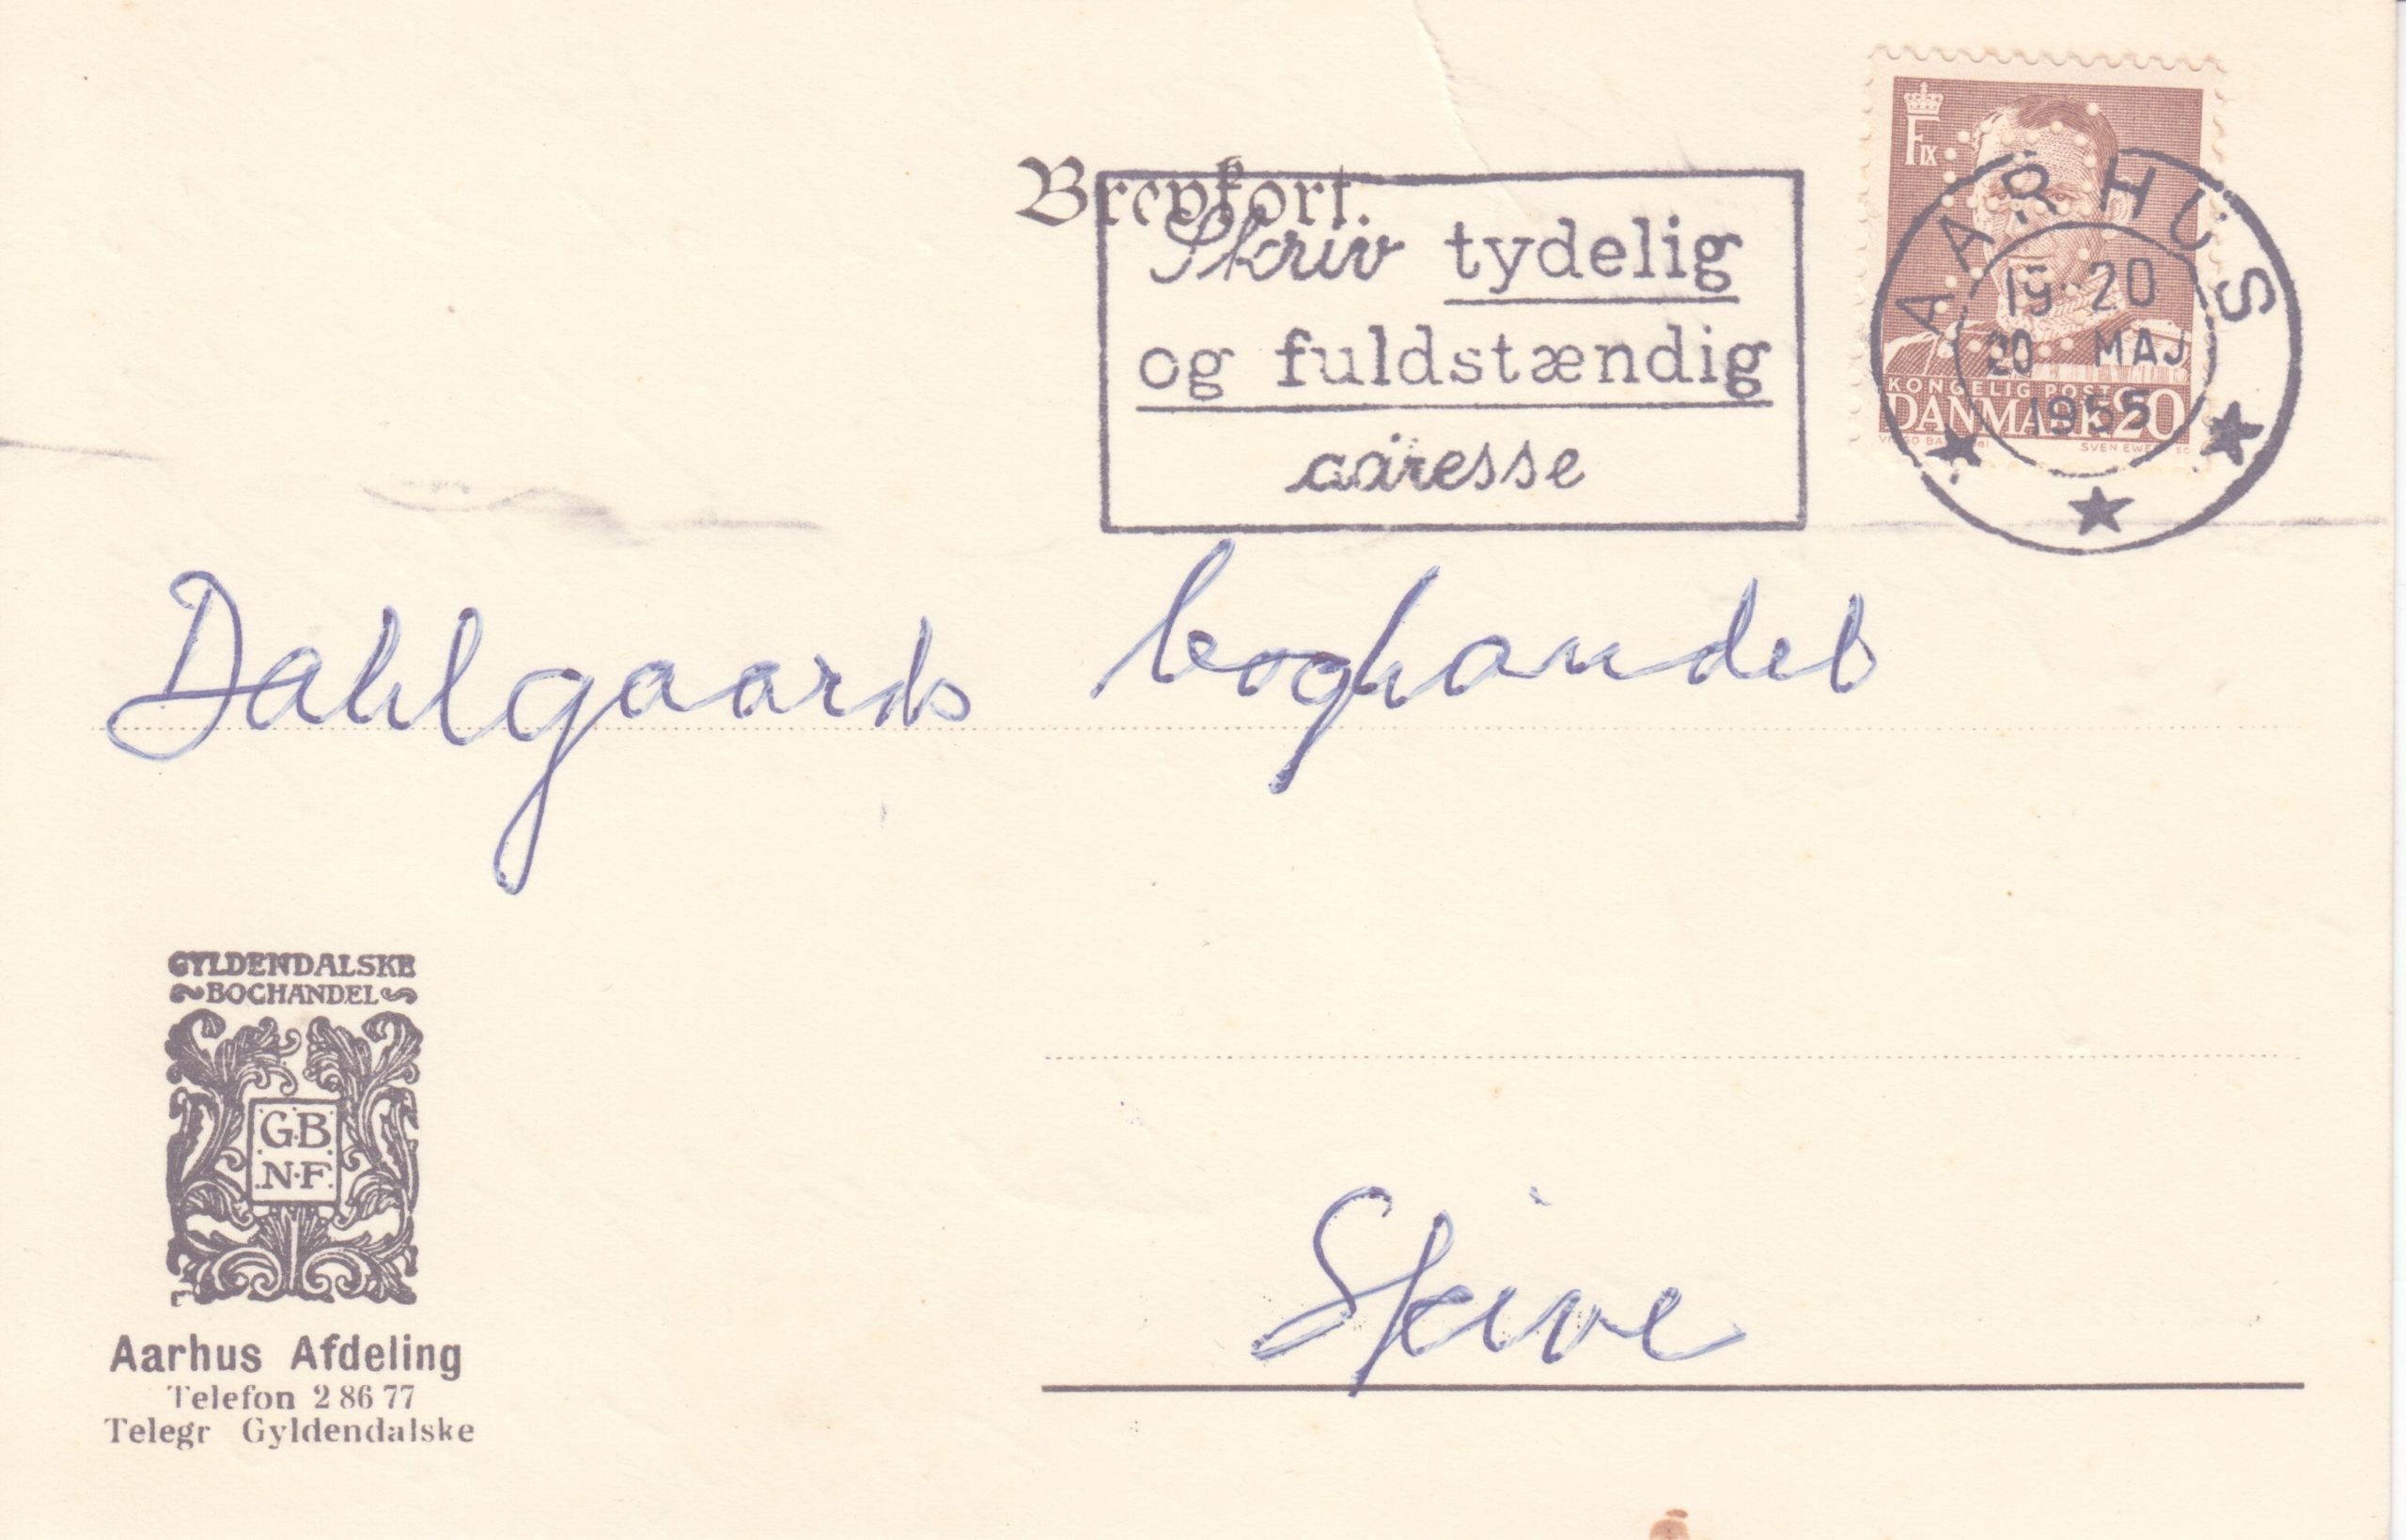 Brevkort.
Skriv tydelig
og fuldstændig
adresse
F IX
KONGELIG POST
DANMARK 20
AARHUS
19-20
20 MAJ
1955
Dahlgaards boghandel
GYLDENDALSKE
BOGHANDEL
G·B
N·F
Aarhus Afdeling
Telefon 2 86 77
Telegr Gyldendalske
Skive